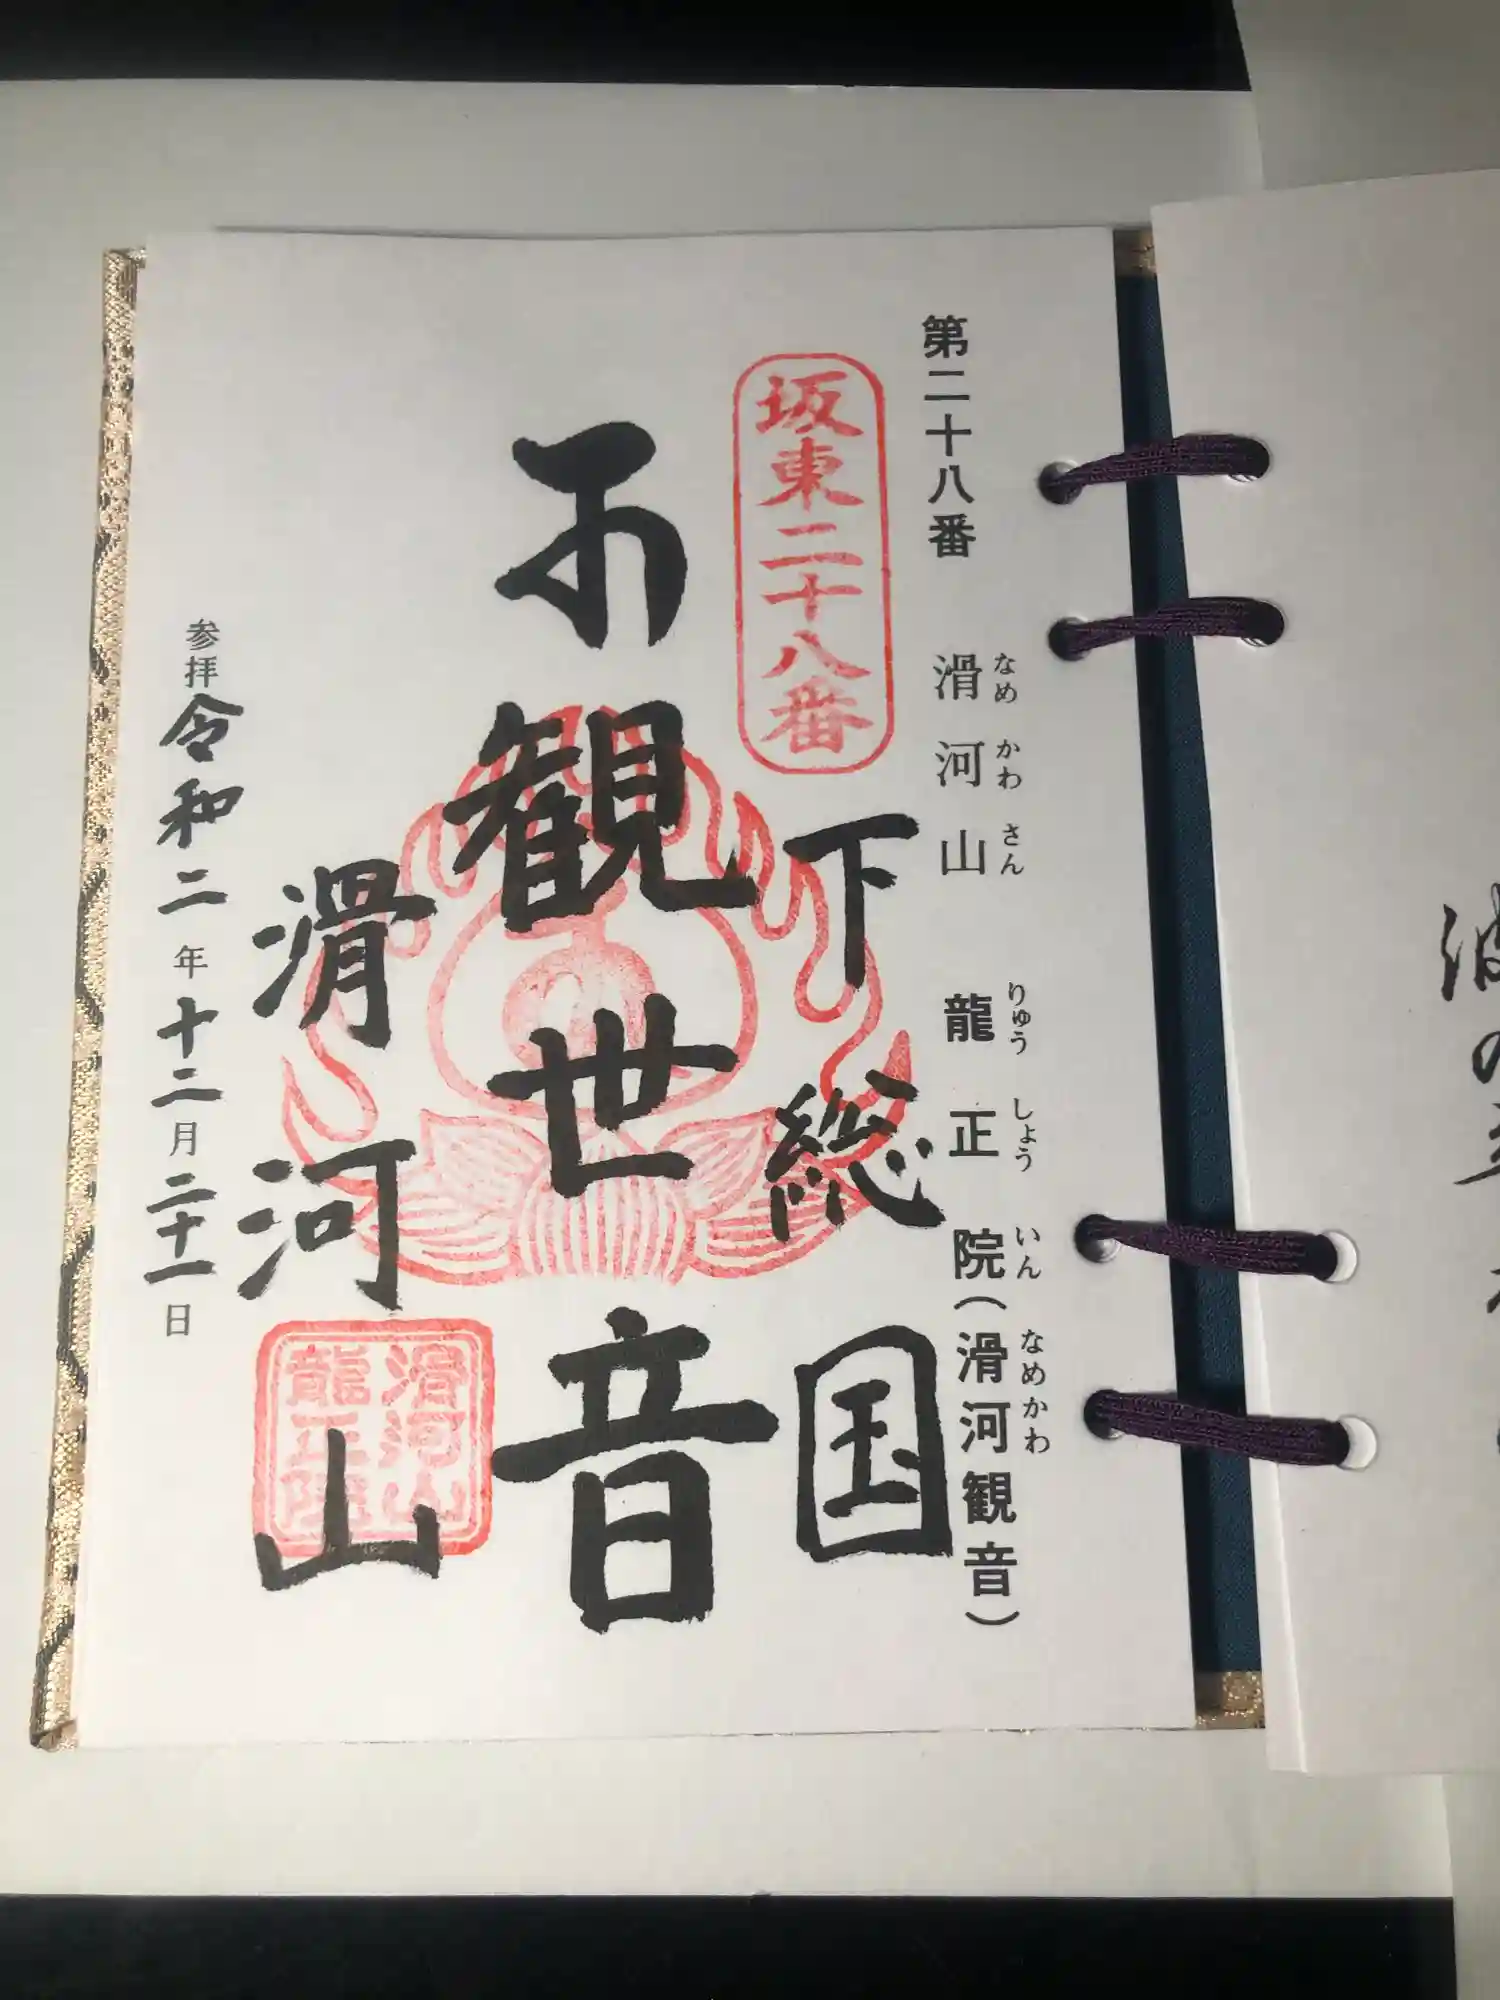 第二十八番 滑河山 龍正院(滑河観音)
なめ かわ さん りゅう しょう いん なめかわ
坂東二十八番
下総国
観世音
滑河山
滑河山
龍正院
参拝 令和二年十二月二十一日
波の